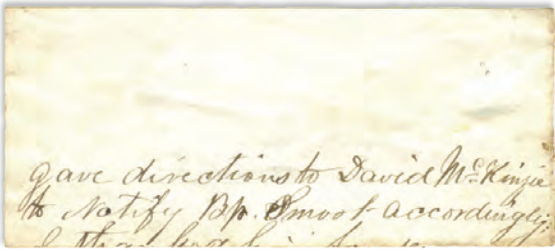 gave directions to David McKinzie
to Notify Bp. Smoot accordingly;